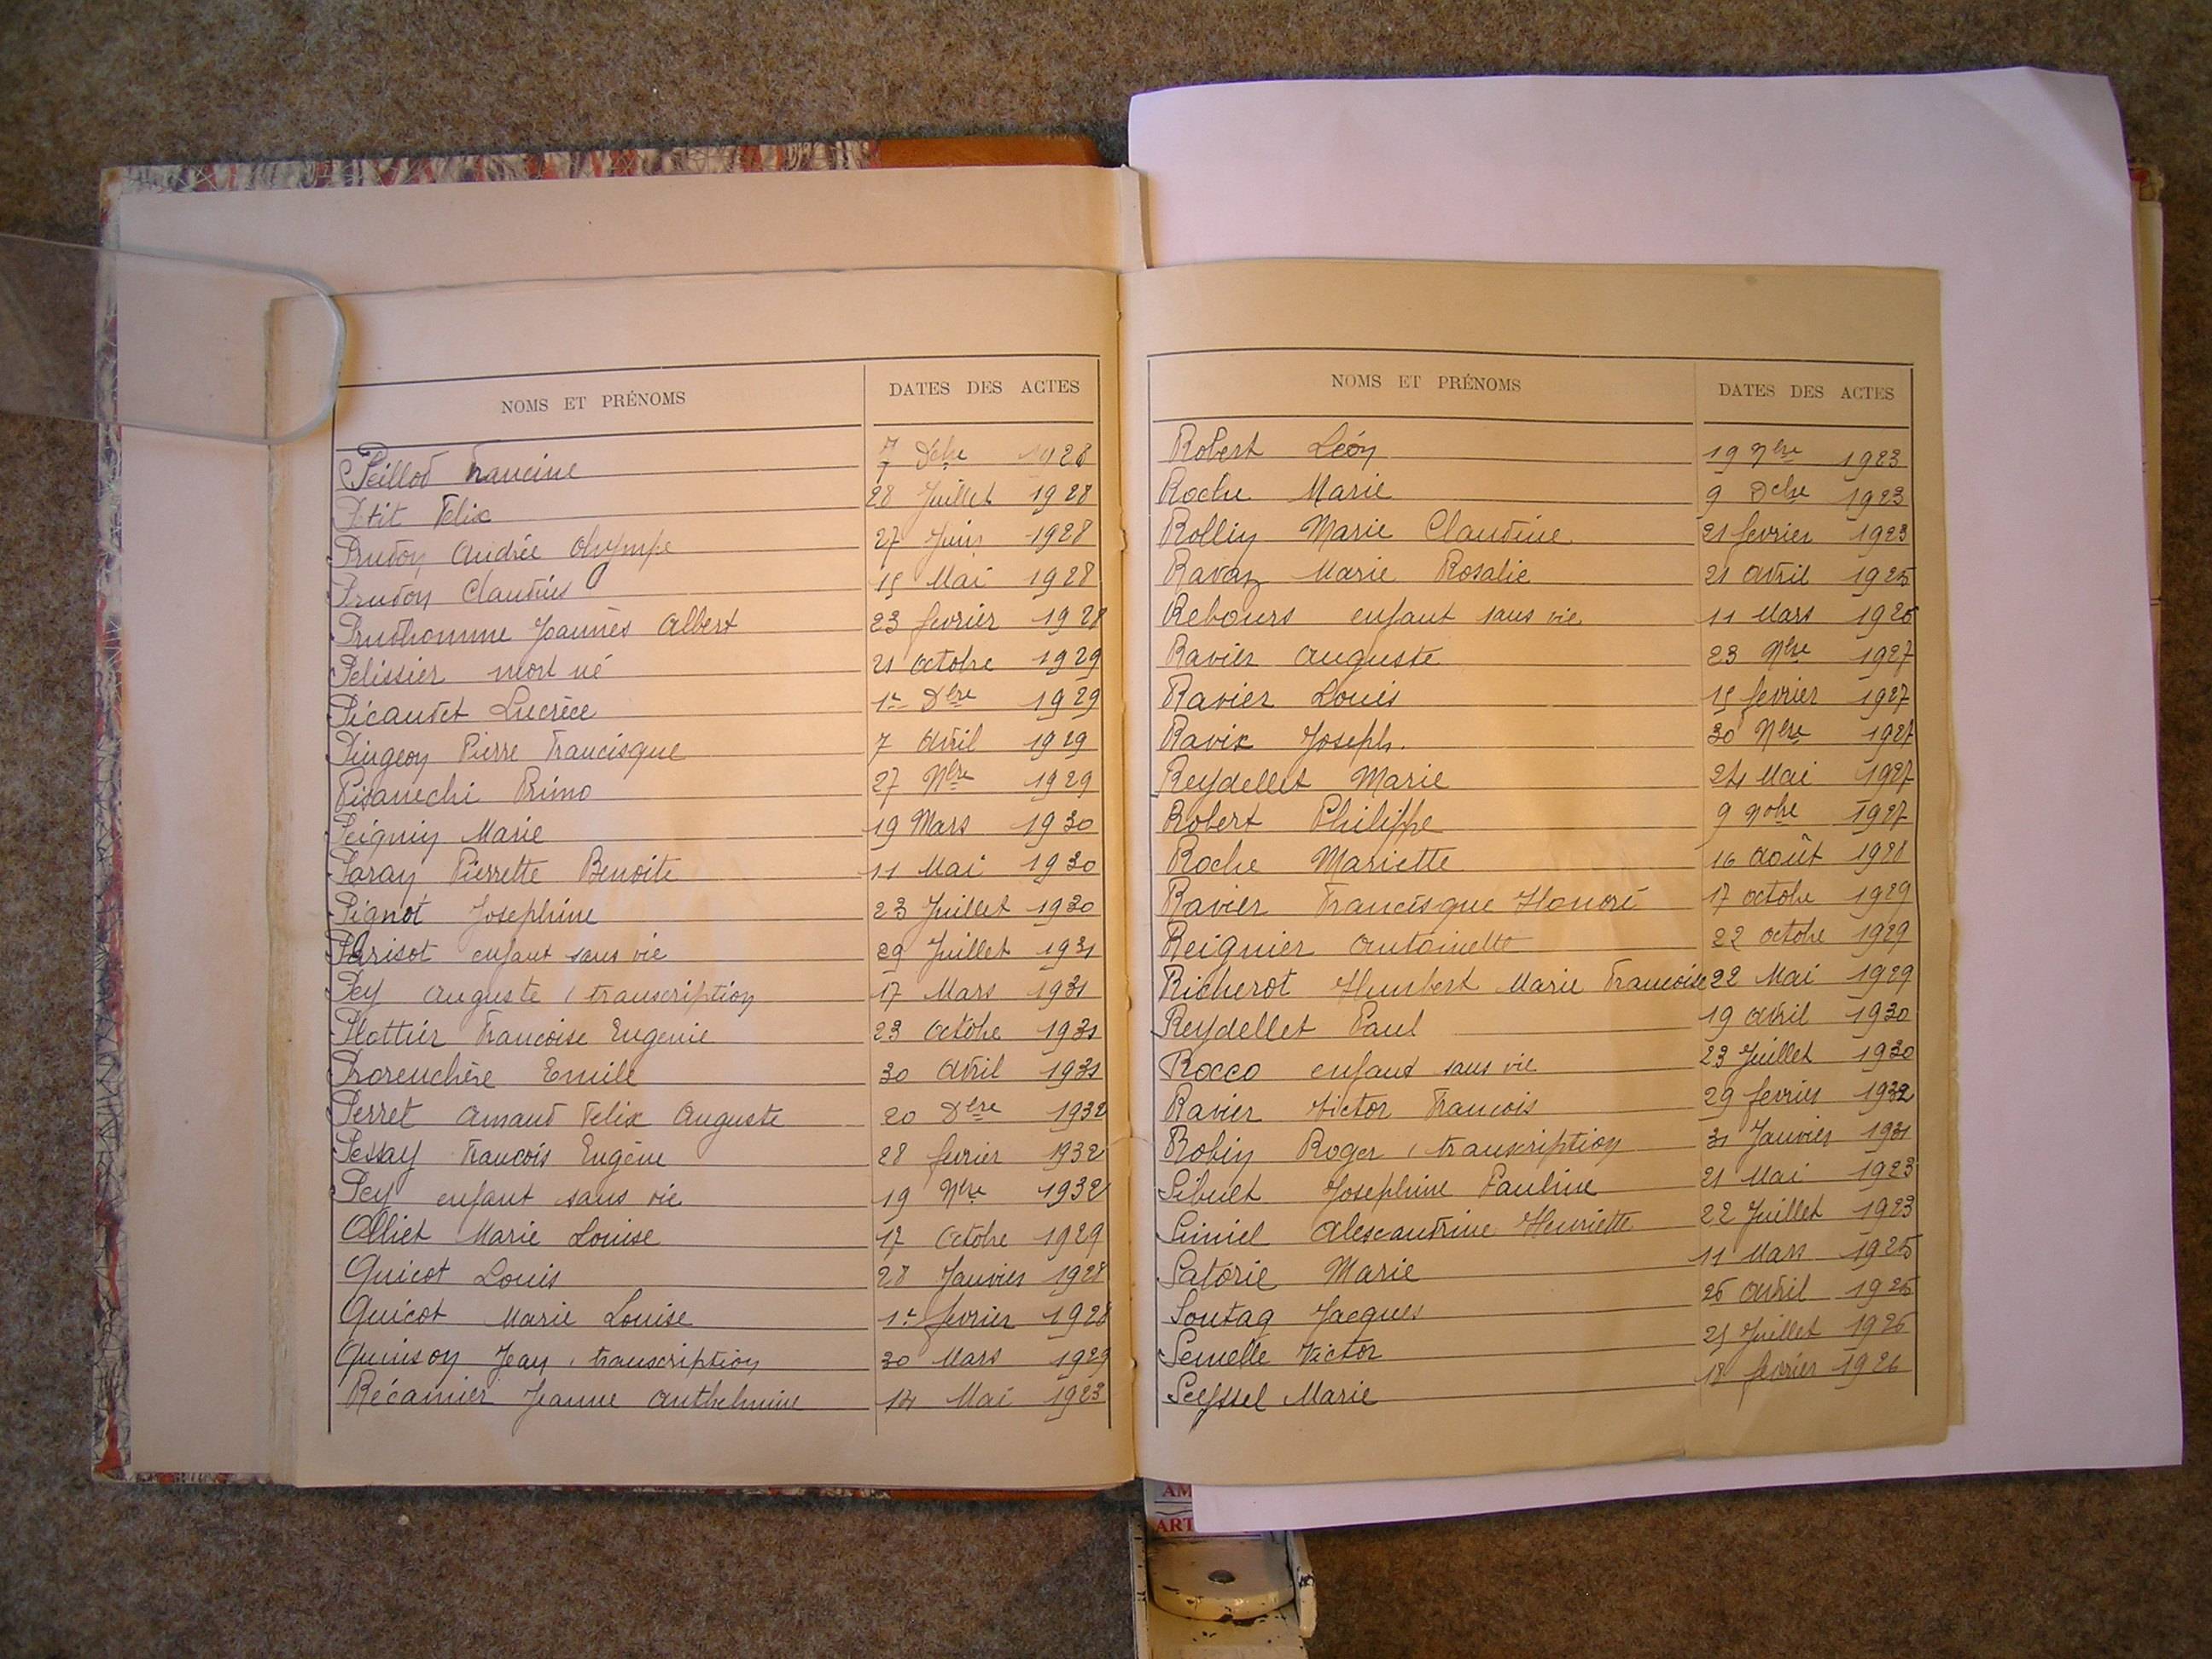 NOMS ET PRÉNOMS DATES DES ACTES
Peillod Francine 7 Dcbre 1928
Petit Felix 28 Juillet 1928
Prudon Andrée Olympe 27 Juin 1928
Prudon Claudius 15 Mai 1928
Prudhomme Joannès Albert 23 fevrier 1928
Pelissier mort né 21 octobre 1929
Picaudet Lucrèce 1er Dbre 1929
Pingeon Pierre Francisque 7 Avril 1929
Pisanechi Primo 27 Nbre 1929
Peignin Marie 19 Mars 1930
Paray Pierrette Benoite 11 Mai 1930
Pignot Josephine 23 Juillet 1930
Parisot enfant sans vie 29 Juillet 1931
Pey Auguste (transcription 17 Mars 1931
Plottier Francoise Eugenie 23 Octobre 1931
Prorenchère Emile 30 Avril 1931
Perret Amand Felix Auguste 20 Dbre 1932
Pessay Francois Eugène 28 fevrier 1932
Pey enfant sans vie 19 Nbre 1932
Olliet Marie Louise 17 Octobre 1929
Quicot Louis 28 Janvier 1928
Quicot Marie Louise 1er fevrier 1928
Quinson Jean, transcription 30 Mars 1929
Récamier Jeanne Anthelmine 14 Mai 1923
NOMS ET PRÉNOMS DATES DES ACTES
Robert Léon 19 Nbre 1923
Roche Marie 9 Dcbre 1923
Rollin Marie Claudine 21 fevrier 1923
Ravaz Marie Rosalie 21 Avril 1925
Rebours enfant sans vie 11 Mars 1926
Ravier Auguste 23 Nbre 1927
Ravier Louis 15 fevrier 1927
Ravix Joseph. 30 Nbre 1927
Reydellet Marie 24 Mai 1927
Robert Philippe 9 Nobre 1927
Roche Mariette 16 Août 1928
Ravier Francisque Honoré 17 octobre 1929
Reignier Antoinette 22 octobre 1929
Richerot Humbert Marie Francoise 22 Mai 1929
Reydellet Paul 19 Avril 1930
Rocco enfant sans vie 23 Juillet 1930
Ravier Victor Francois 29 fevrier 1932
Robin Roger (transcription 31 Janvier 1931
Sibuet Josephine Pauline 21 Mai 1923
Simiel Alexandrine Henriette 22 Juillet 1923
Satorie Marie 11 Mars 1925
Sontag Jacques 26 Avril 1925
Semelle Victor Juillet 1926
Seyssel Marie 18 fevrier 1926
AM
ART